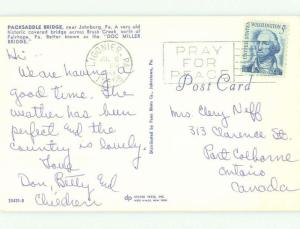 PACKSADDLE BRIDGE, near Johnsburg, Pa. A very old
historic covered bridge across Brush Creek north of
Fairhope, Pa. Better known as the "DOC MILLER
BRIDGE."
LIGONIER, PA
PRAY
FOR
PEACE
UNITED STATES
WASHINGTON
5¢
Post Card
Hi...
We are having a
good time. The
weather has been
perfect and the
country is lovely.
Love
Don, Betty and
Children
Mrs. Clery Neff
313 Clarence St.
Port Colborne
Ontario
Canada
Distributed by Penn News Co., Johnstown, Pa.
DEXTER PRESS, INC.
WEST NYACK, NEW YORK